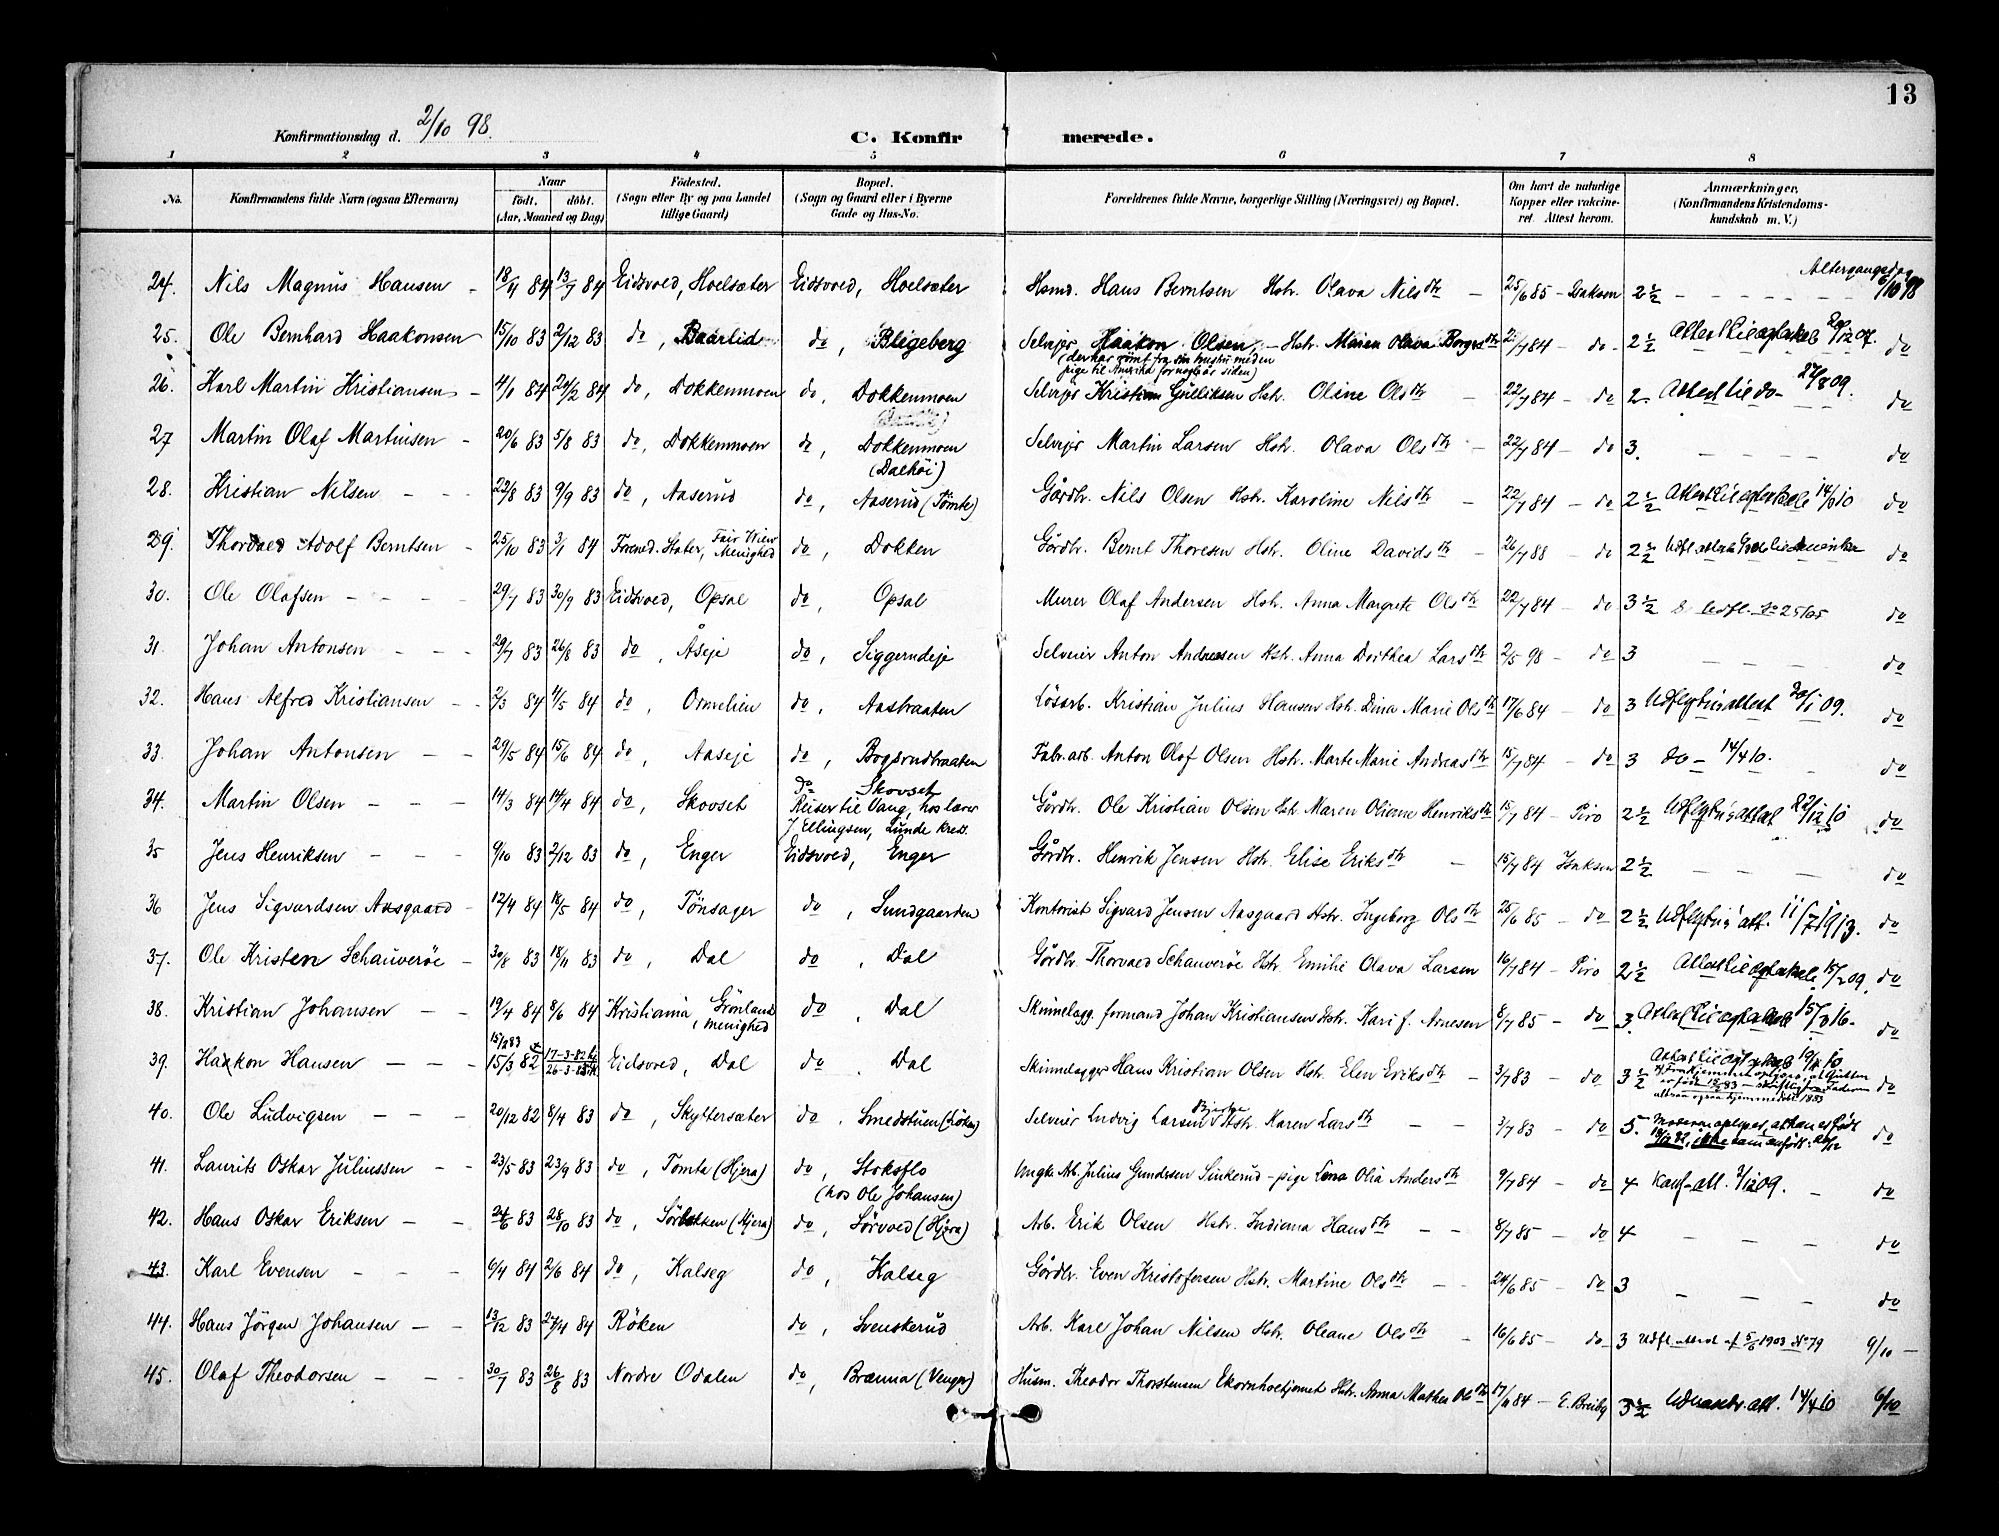 13
Konfirmationsdag d. 2/10 98.
C. Konfirmerede.
1 2 3 4 5 6 7 8
No. Konfirmandens fulde Navn (ogsaa Efternavn) Naar født. døbt. (Aar, Maaned og Dag) Fødested. (Sogn eller By og paa Landet tillige Gaard) Bopæl. (Sogn og Gaard eller i Byerne Gade og Hus-No. Forældrenes fulde Navne, borgerlige Stilling (Næringsvei) og Bopæl. Om havt de naturlige Kopper eller vakcineret. Attest herom. Anmærkninger. (Konfirmandens Kristendomskundskab m. V.)
Altergangsdag
24. Nils Magnus Hansen - 18/4 84 13/7 84 Eidsvold, Hoelsæter Eidsvold, Hoelsæter Hsmd. Hans Berntsen Hstr. Olava Nilsdtr - 25/6 85 - Isaksen 2½ - 6/10 98
25. Ole Bernhard Haakonsen 15/10 83 2/12 83 do, Baarlid do, Bligeberg Selvejer Haakon Olsen - Hstr. Maren Olava Borgesdtr /7 84 - do 2½ Attest til egteskab 20/12 07. do
(der har rømt fra sin hustru med en
pige til Amerika for nogle år siden)
26. Karl Martin Kristiansen - 4/1 84 24/2 84 do, Dokkenmoen do, Dokkenmoen Selvejer Kristian Gulliksen Hstr. Oline Olsdtr - 22/7 84 - do 2 - Attest til do - 27/8 09. do
27 Martin Olaf Martinsen - 20/6 83 5/8 83 do, Dokkenmoen do, Dokkenmoen (Dalhöi) Selvejer Martin Larsen Hstr. Olava Olsdtr - 22/7 84 - do 3. do
28. Kristian Nilsen - - - 22/8 83 9/9 83 do, Aaserud do, Aaserud (Tömte) Gårdbr. Nils Olsen Hstr. Karoline Nilsdtr - 22/7 84 - do 2½ Attest til egteskab 14/9 10 do
29. Thorvald Adolf Berntsen - 25/10 83 3/1 84 Forened. Stater, Fair View Menighed do, Dokken Gårdbr. Bernt Thoresen Hstr. Oline Davidsdtr - 26/7 88 - do 2½ Udfl. attest til Amerika do
30. Ole Olafsen - - - 29/7 83 30/9 83 Eidsvold, Opsal do, Opsal Murer Olaf Andersen Hstr. Anna Margrete Olsdtr 22/7 84 - do 3½ Udfl. 25/05 do
31 Johan Antonsen - - - 29/7 83 26/8 83 do, Åseje do, Siggerudeje Selveier Anton Andresen Hstr. Anna Dorthea Larsdtr 2/5 98 - do 3 - - - do
32. Hans Alfred Kristiansen - - 2/3 84 4/5 84 do, Ormelien do, Aasbraaten Lösarb. Kristian Julius Hansen Hstr. Dina Marie Olsdtr 17/6 84 - do 3 Udflytnisattest 20/1 09. do
33. Johan Antonsen - - 29/5 84 15/6 84 do, Aaseje do, Bogsrudbraaten Fabr. arb. Anton Olaf Olsen Hstr. Marte Marie Andreasdtr 15/7 84 - do 3 do - 14/4 10. do
34. Martin Olsen - - - 14/3 84 14/4 84 do, Skovset do Skovset Reiser til Vang, hos lærer J Ellingsen, Lunde kreds. Gårdbr. Ole Kristian Olsen Hstr. Maren Oliane Henriksdtr 15/7 84 - Piro 2½ Udflytnisattest 22/12 10 do
35 Jens Henriksen - - - 9/10 83 2/12 83 do, Enger Eidsvold, Enger Gårdbr. Henrik Jensen Hstr. Elise Eriksdtr - 15/7 84 Isaksen 2½ - - - do
36 Jens Sigvardsen Aasgaard - 12/4 84 18/5 84 do, Tönsager do, Sundgaarden Kontorist Sigvard Jensen Aasgaard Hstr. Ingeborg Olsdtr 25/6 85 - do 2½ Udflytnis att. 11/7 1913. do
37. Ole Kristen Schauveröe - 30/8 83 18/11 83 do, Dal do, Dal Gårdbr Thorvald Schauveröe Hstr. Emilie Olava Larsen 16/7 84 - Piro 2½ Attest til egteskab 15/2 09. do
38. Kristian Johansen - - 19/4 84 8/6 84 Kristiania, Grönland menighed do, Dal Skinnelægg. formand Johan Kristiansen Hstr. Kari f. Arnesen 8/7 85 - do 3. Attest til egteskab 15/8 16. do
39. Haakon Hansen - - 15/2 83 15/3 82 17-3-82 26-3-83 Eidsvold, Dal do. Dal Skinnelægger Hans Kristian Olsen Hstr. Elen Eriksdtr - 3/7 83 - do 3½ Attest til egteskab 19/11 10 do
40. Ole Ludvigsen - - 20/12 82 8/4 83 do, Skyttersæter do, Smedstuen (Löken) Selveier Ludvig Larsen Bjerke Hstr. Karen Larsdtr - - 3/7 83 - do 5. Moderen oplyser, at han er født do
41. Laurits Oskar Juliussen - - 23/5 83 23/9 83 do, Tömte (Hjera) do, Stoksflo (hos Ole Johansen) Ungk. Ab. Julius Gundersen Sinkerud - pige Lena Olia Andersdtr 9/7 84 - do 4 Konf. att. 09. - do
42. Hans Oskar Eriksen - - 24/6 83 28/10 83 do, (Hjera) do, Sörvold (Hjera) Arb. Erik Olsen Hstr. Indiana Hansdtr - - 8/7 85 - do 4 - - - do
43. Karl Evensen - - - 6/4 84 2/6 84 do, Kalseg do, Kalseg Gårdbr. Even Kristofersen Hstr. Martine Olsdtr - - 24/6 85 - do 3 - - - do
44. Hans Jörgen Johansen - - 13/12 83 27/4 84 Röken do, Svenskerud Arb. Karl Johan Nilsen Hstr. Oleane Olsdtr - 16/6 85 - do 3 Udfl. attest af 5/6 1903 No 79 9/10 -
45. Olaf Theodorsen - - - 30/7 83 26/8 83 Nordre Odalen do, Brænna (Venger) Husm. Theodor Thorstensen Ekornholtjernet Hstr. Anna Mathea Olsdtr 17/11 84 - E. Breiby 3½ Udvandr. att. 14/4 10 6/10